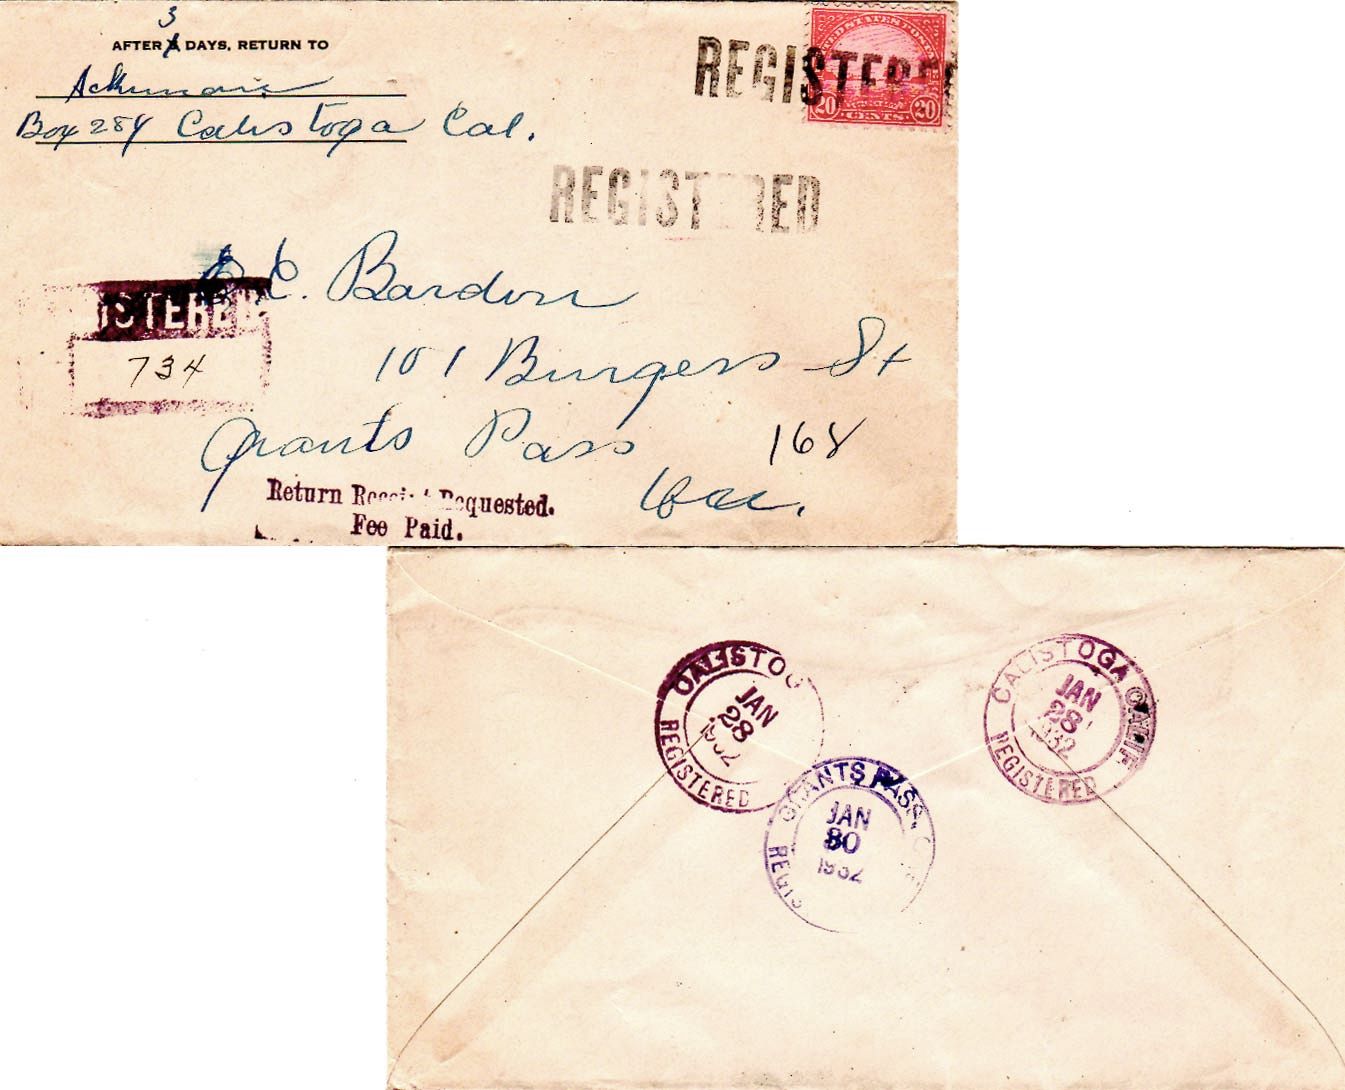 3
AFTER 5 DAYS, RETURN TO
Box 284 Calistoga Cal.
REGISTERED
UNITED STATES POSTAGE
20 CENTS 20
REGISTERED
E. C. Bardon
ISTERED
734
101 Burgess St
Grants Pass
168
Ore.
Return Receipt Requested.
Fee Paid.
CALISTOG
JAN
28
1932
REGISTERED
CALISTOGA CALIF
JAN
28
1932
REGISTERED
GRANTS PASS, O
JAN
30
1932
REGIS